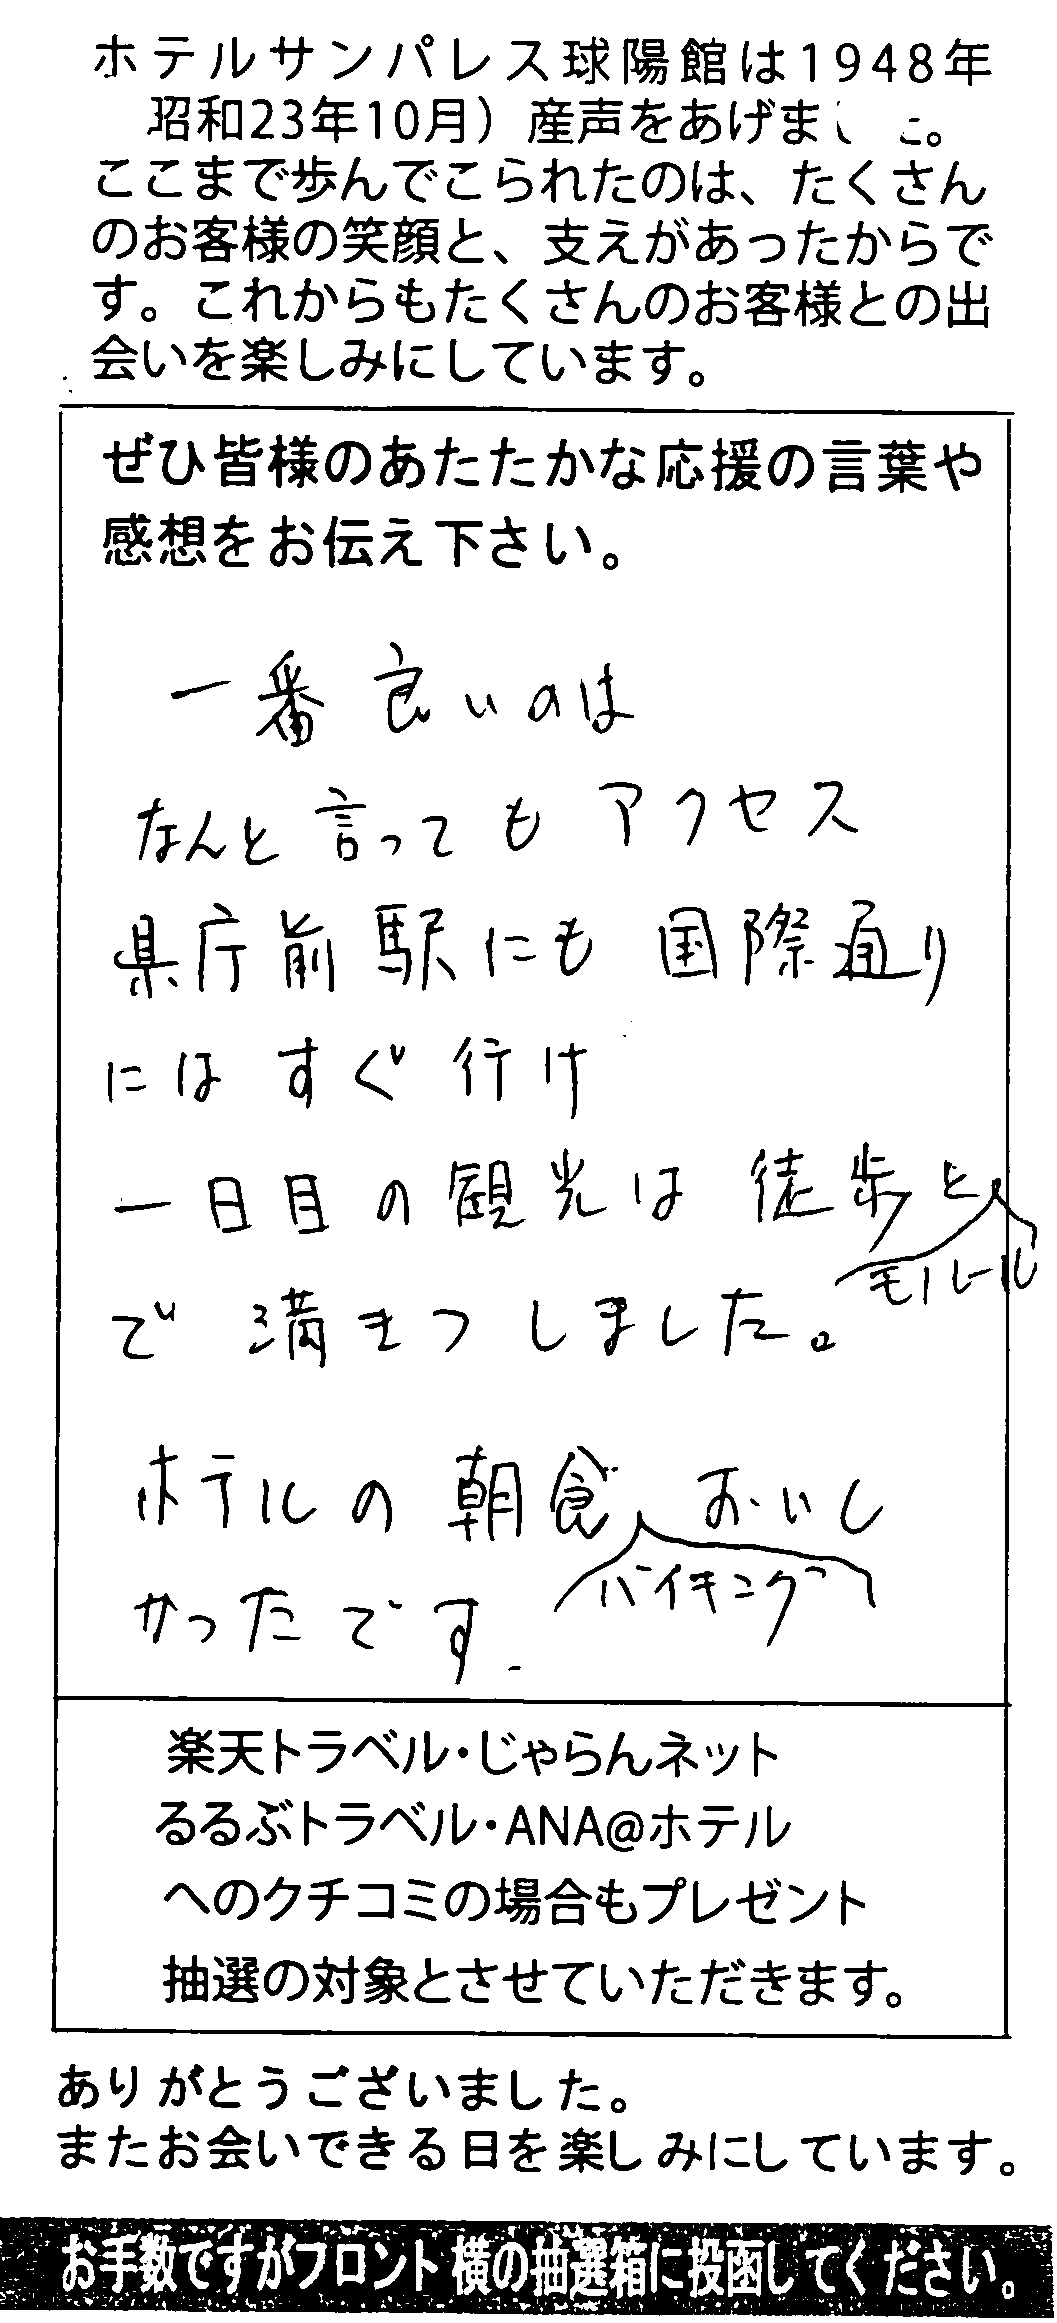 ホテルサンパレス球陽館は1948年
昭和23年10月）産声をあげました。
ここまで歩んでこられたのは、たくさん
のお客様の笑顔と、支えがあったからで
す。これからもたくさんのお客様との出
会いを楽しみにしています。
ぜひ皆様のあたたかな応援の言葉や
感想をお伝え下さい。
一番良いのは
なんと言ってもアクセス
県庁前駅にも国際通り
にはすぐ行け
一日目の観光は徒歩と
モノレール
で満きつしました。
ホテルの朝食おいし
バイキング
かったです.
楽天トラベル・じゃらんネット
るるぶトラベル・ANA@ホテル
へのクチコミの場合もプレゼント
抽選の対象とさせていただきます。
ありがとうございました。
またお会いできる日を楽しみにしています。
お手数ですがフロント横の抽選箱に投函してください。